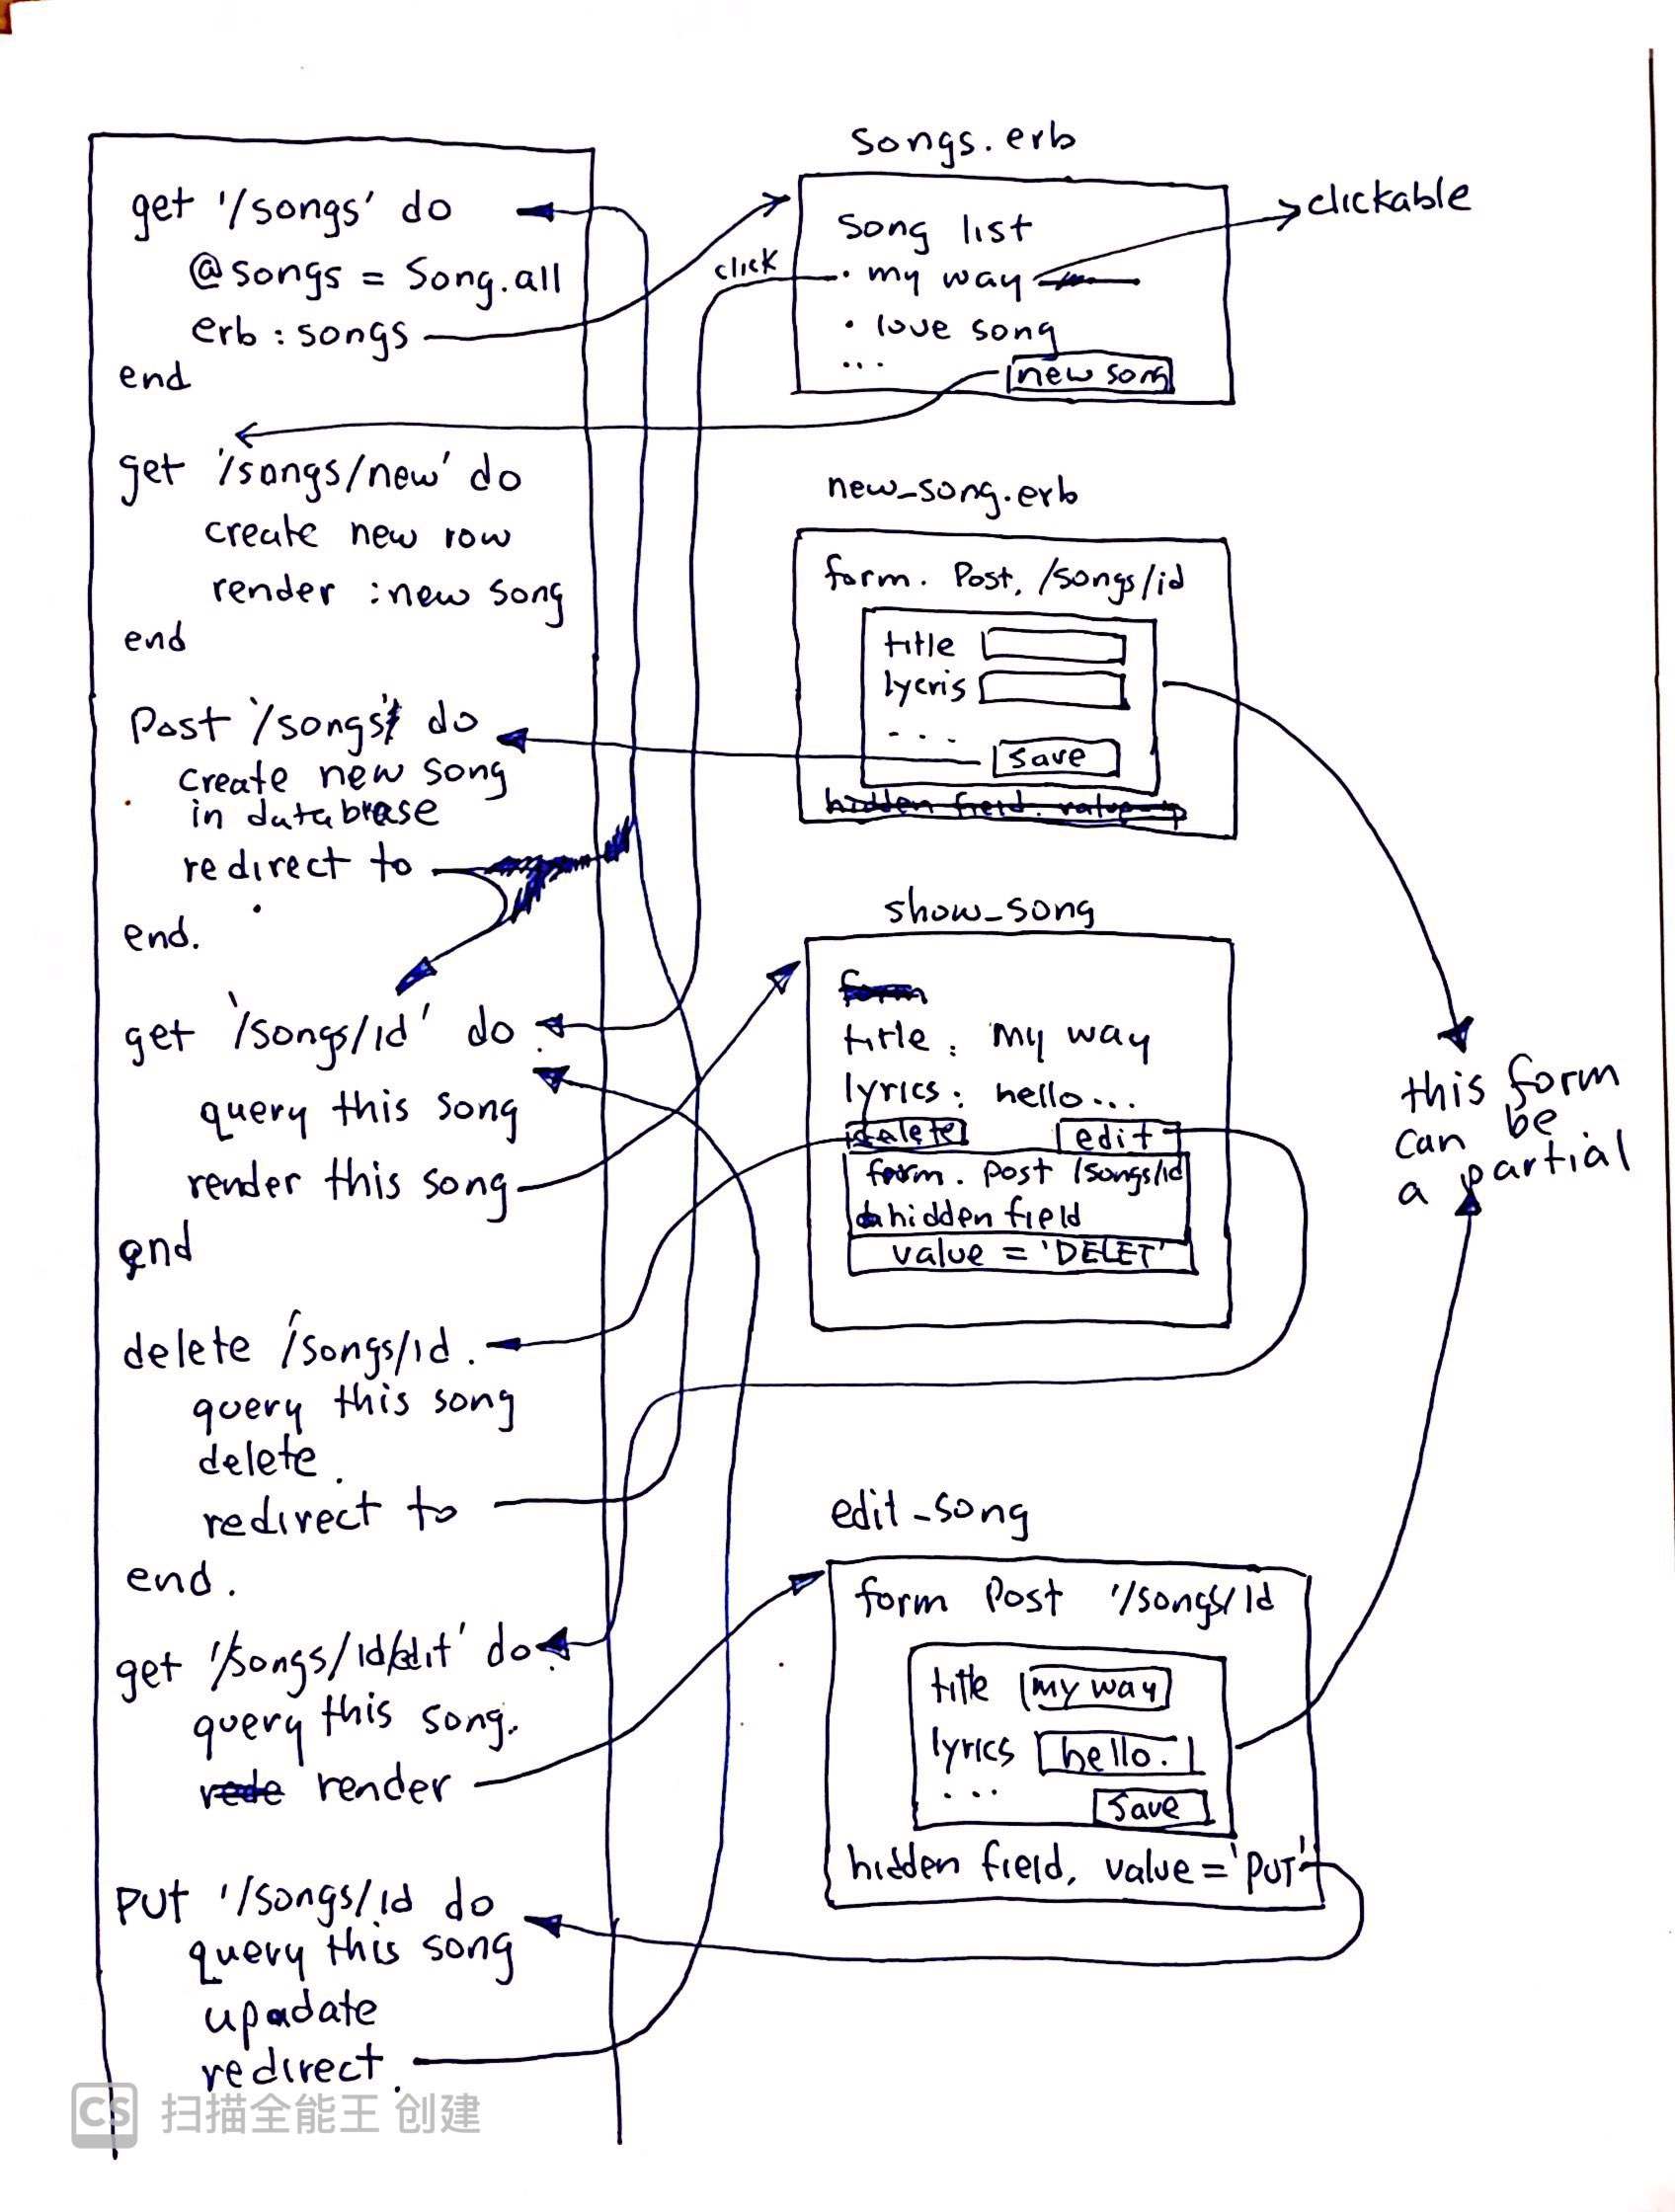 get '/songs' do
@songs = Song.all
erb : songs
end
get '/songs/new' do
create new row
render : new song
end
Post '/songs' do
create new song
in database
redirect to
end.
get '/songs/id' do
query this song
render this song
end
delete '/songs/id.
query this song
delete.
redirect to
end.
get '/songs/id/edit' do.
query this song.
rede render
PUT '/songs/id do
query this song
upadate
redirect.
songs.erb
song list
click
• my way
clickable
• love song
...
new song
new_song.erb
form. Post, /songs/id
title
lycris
...
save
hidden field. value
show_song
form
title : my way
lyrics : hello...
delete
edit
form. post /songs/id
hidden field
value = 'DELET'
this form
can be
a partial
edit_song
form Post '/songs/id
title my way
lyrics hello.
...
save
hidden field, value = 'PUT'
CS 扫描全能王 创建